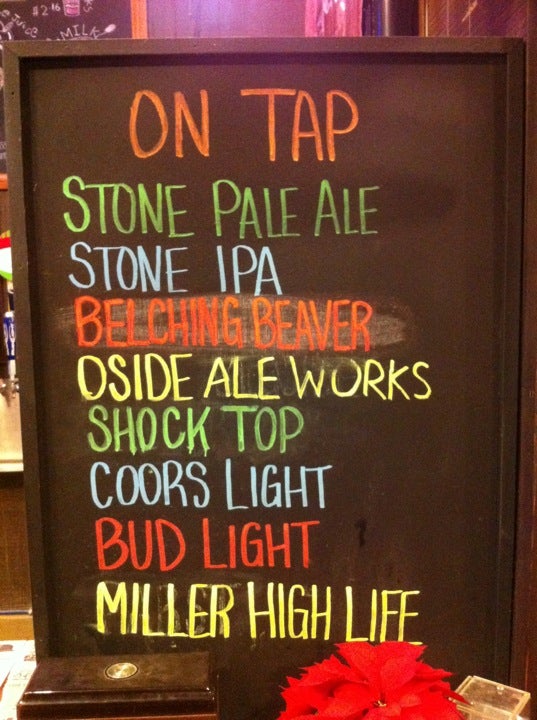 #2.16
MILK
ON TAP
STONE PALE ALE
STONE IPA
BELCHING BEAVER
OSIDE ALE WORKS
SHOCK TOP
COORS LIGHT
BUD LIGHT
MILLER HIGH LIFE